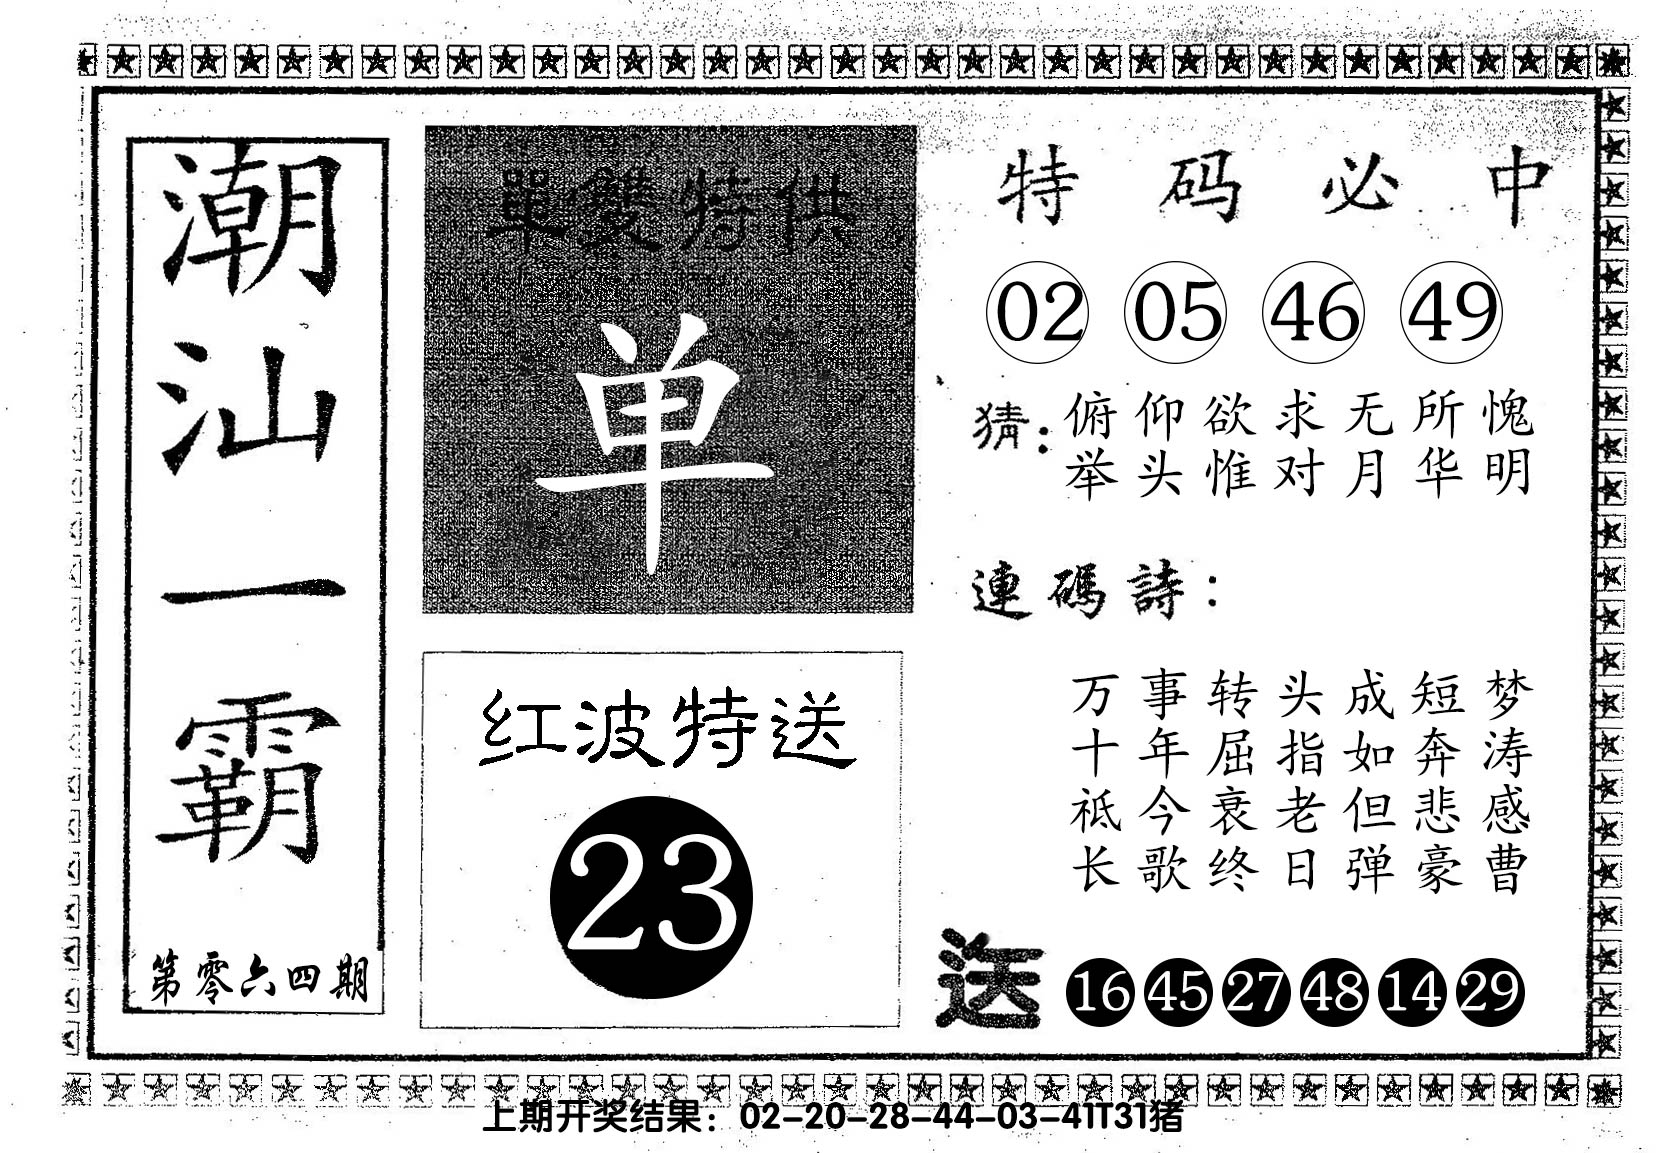 潮汕一霸
第零六四期
單雙特供
单
红波特送
23
特码必中
02 05 46 49
猜：
俯仰欲求无所愧
举头惟对月华明
連碼詩：
万事转头成短梦
十年屈指如奔涛
祗今衰老但悲感
长歌终日弹豪曹
送 16 45 27 48 14 29
上期开奖结果：02-20-28-44-03-41T31猪